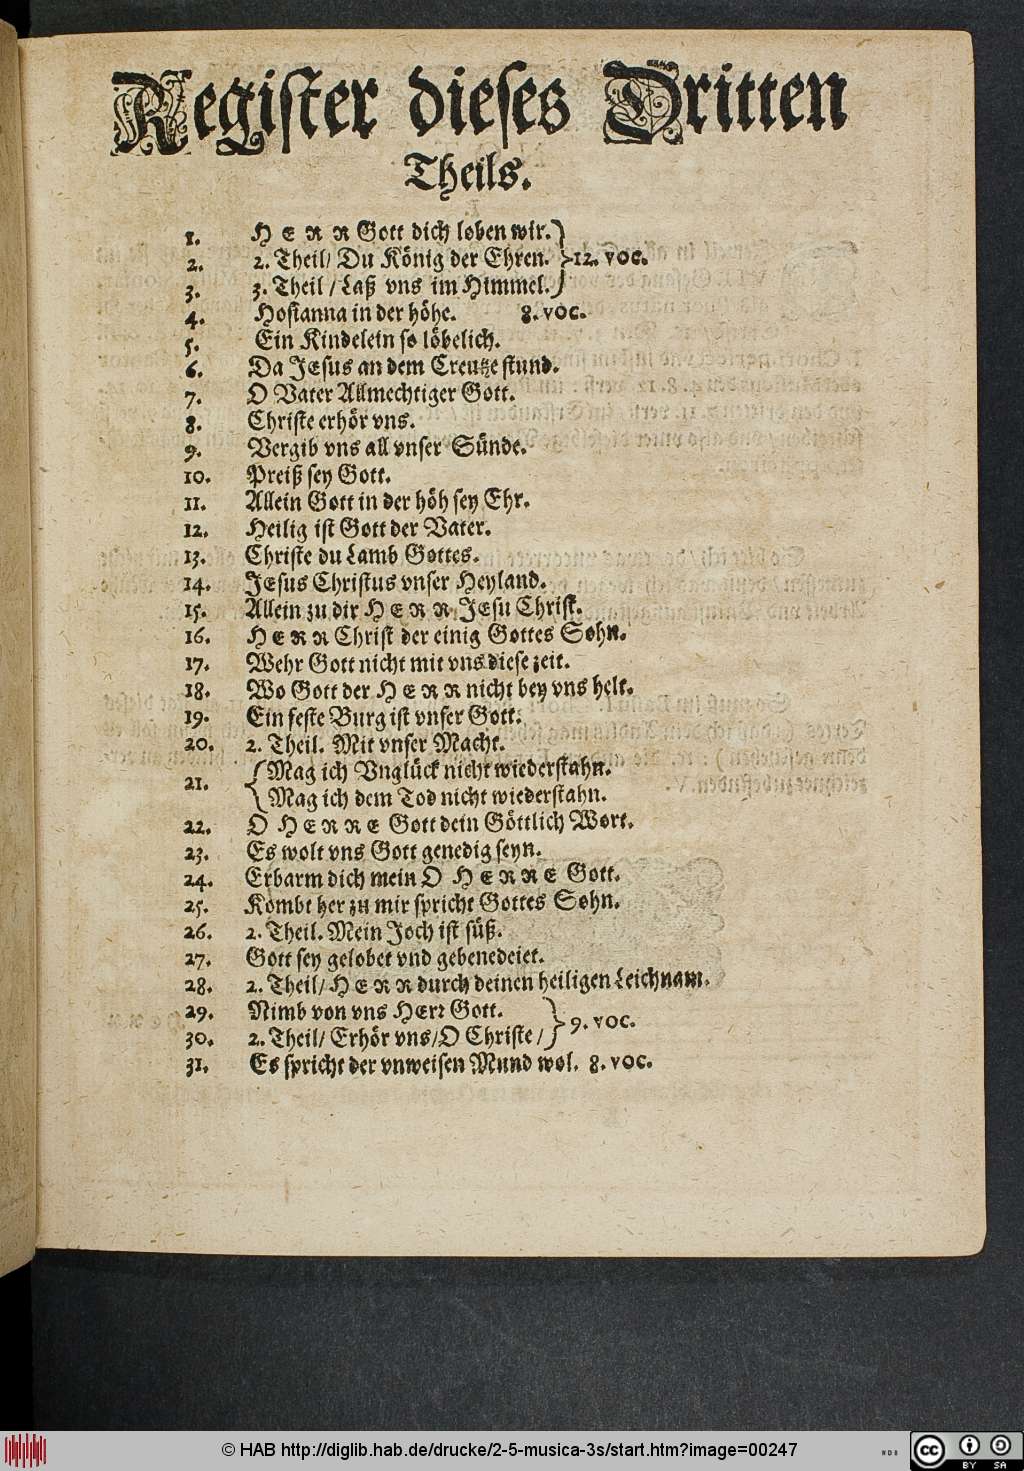 Register dieses Dritten
Theils.
1. HERR Gott dich loben wir.
2. 2. Theil/ Du König der Ehren. } 12. voc.
3. 3. Theil / Laß vns im Himmel.
4. Hosianna in der höhe. 8. voc.
5. Ein Kindelein so löbelich.
6. Da JEsus an dem Creutze stund.
7. O Vater Allmechtiger Gott.
8. Christe erhör vns.
9. Vergib vns all vnser Sünde.
10. Preiß sey Gott.
11. Allein Gott in der höh sey Ehr.
12. Heilig ist Gott der Vater.
13. Christe du Lamb Gottes.
14. JEsus Christus vnser Heyland.
15. Allein zu dir HERR JEsu Christ.
16. HERR Christ der einig Gottes Sohn.
17. Wehr Gott nicht mit vns diese zeit.
18. Wo Gott der HERR nicht bey vns helt.
19. Ein feste Burg ist vnser Gott.
20. 2. Theil. Mit vnser Macht.
21. { Mag ich Vnglück nicht wiederstahn.
Mag ich dem Tod nicht wiederstahn.
22. O HERRE Gott dein Göttlich Wort.
23. Es wolt vns Gott genedig seyn.
24. Erbarm dich mein O HERRE Gott.
25. Kombt her zu mir spricht Gottes Sohn.
26. 2. Theil. Mein Joch ist süß.
27. Gott sey gelobet vnd gebenedeiet.
28. 2. Theil/ HERR durch deinen heiligen Leichnam.
29. Nimb von vns HErr Gott. } 9. voc.
30. 2. Theil/ Erhör vns/ O Christe /
31. Es spricht der vnweisen Mund wol. 8. voc.
© HAB http://diglib.hab.de/drucke/2-5-musica-3s/start.htm?image=00247
WDB
cc BY SA